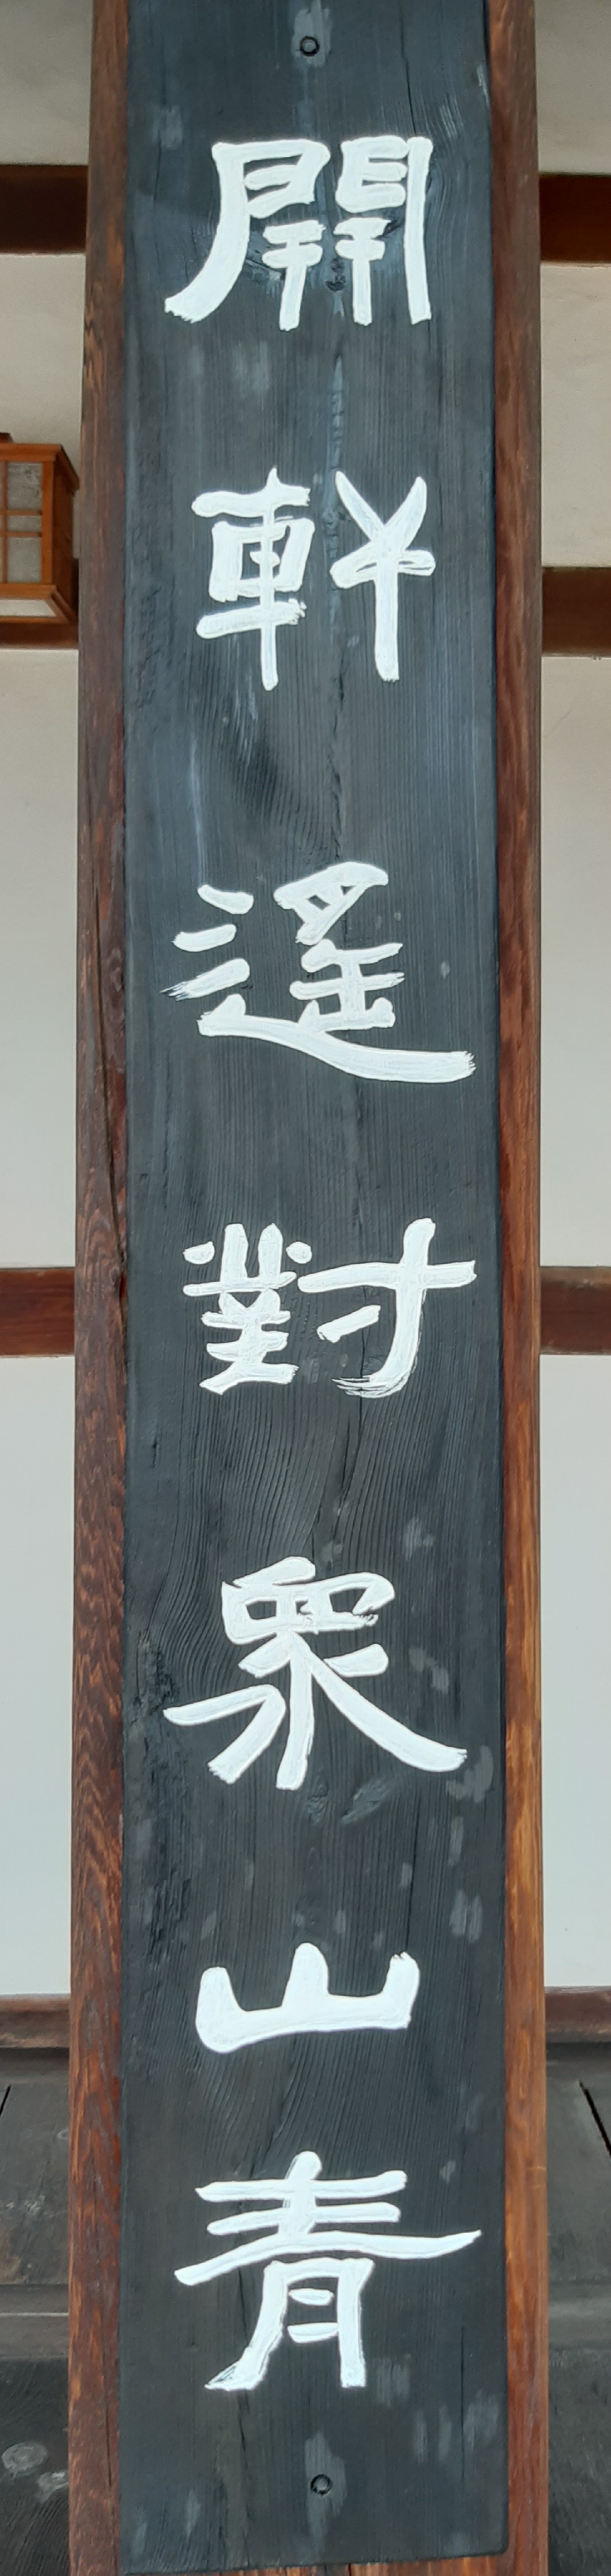 開軒遙對衆山青